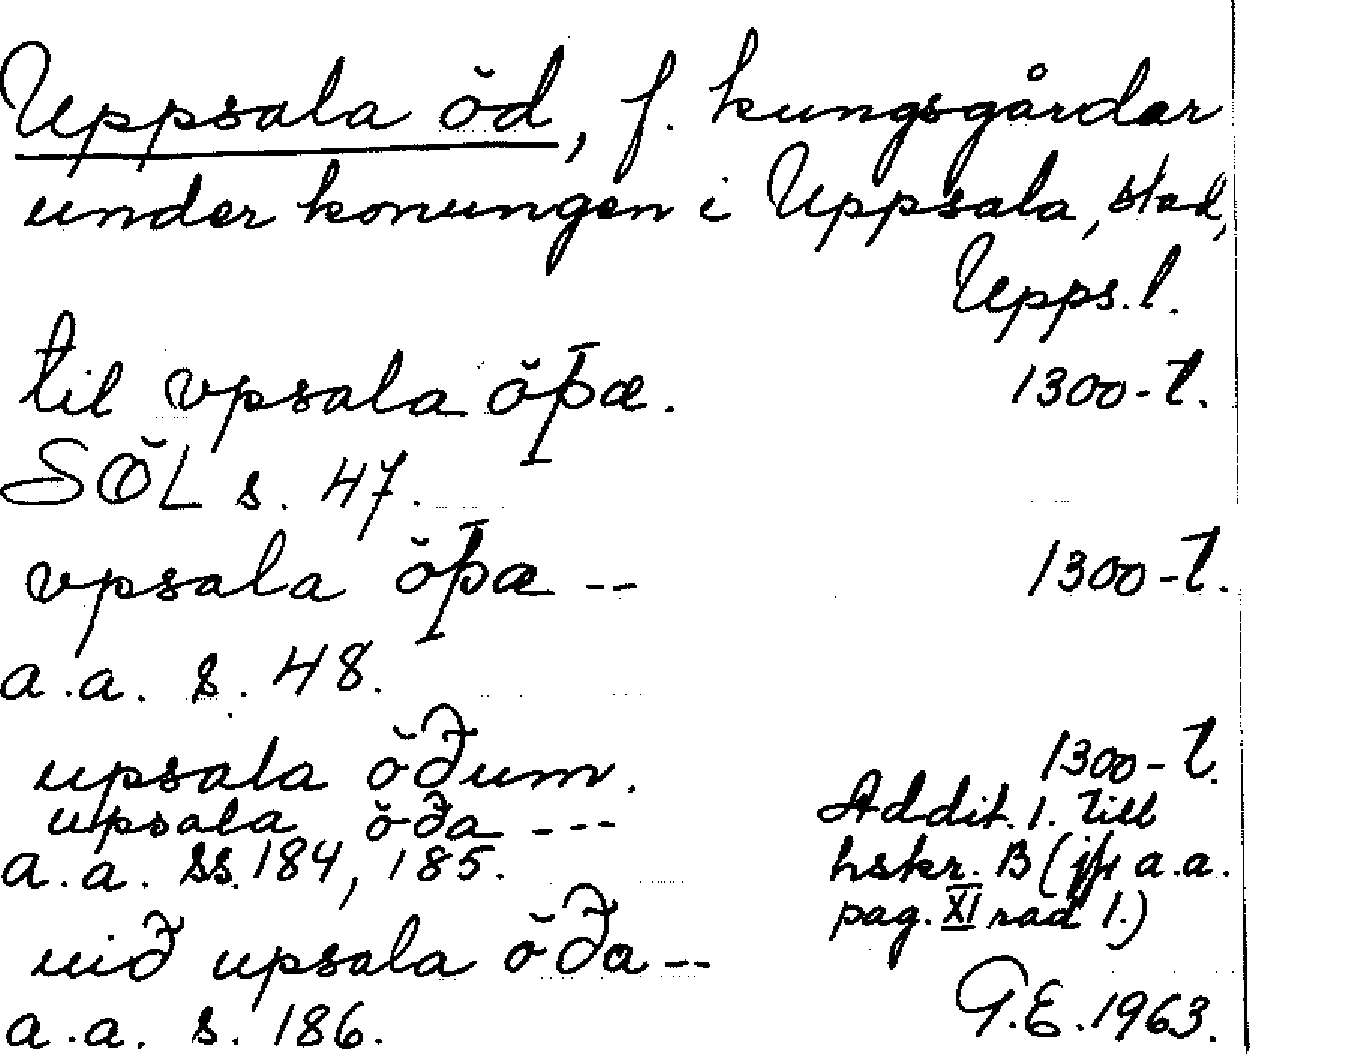 Uppsala öd, f. kungsgårdar
under konungen i Uppsala, stad,
Upps. l.
til vpsala öþæ. 1300-t.
SÖL s. 47.
vpsala öþæ -- 1300-t.
a.a. s. 48.
upsala öðum. 1300-t.
upsala öða --- Addit. 1. till
a.a. ss. 184, 185. hskr. B (jfr a.a.
pag. XI rad 1.)
uið upsala öða --
a.a. s. 186. G.E. 1963.